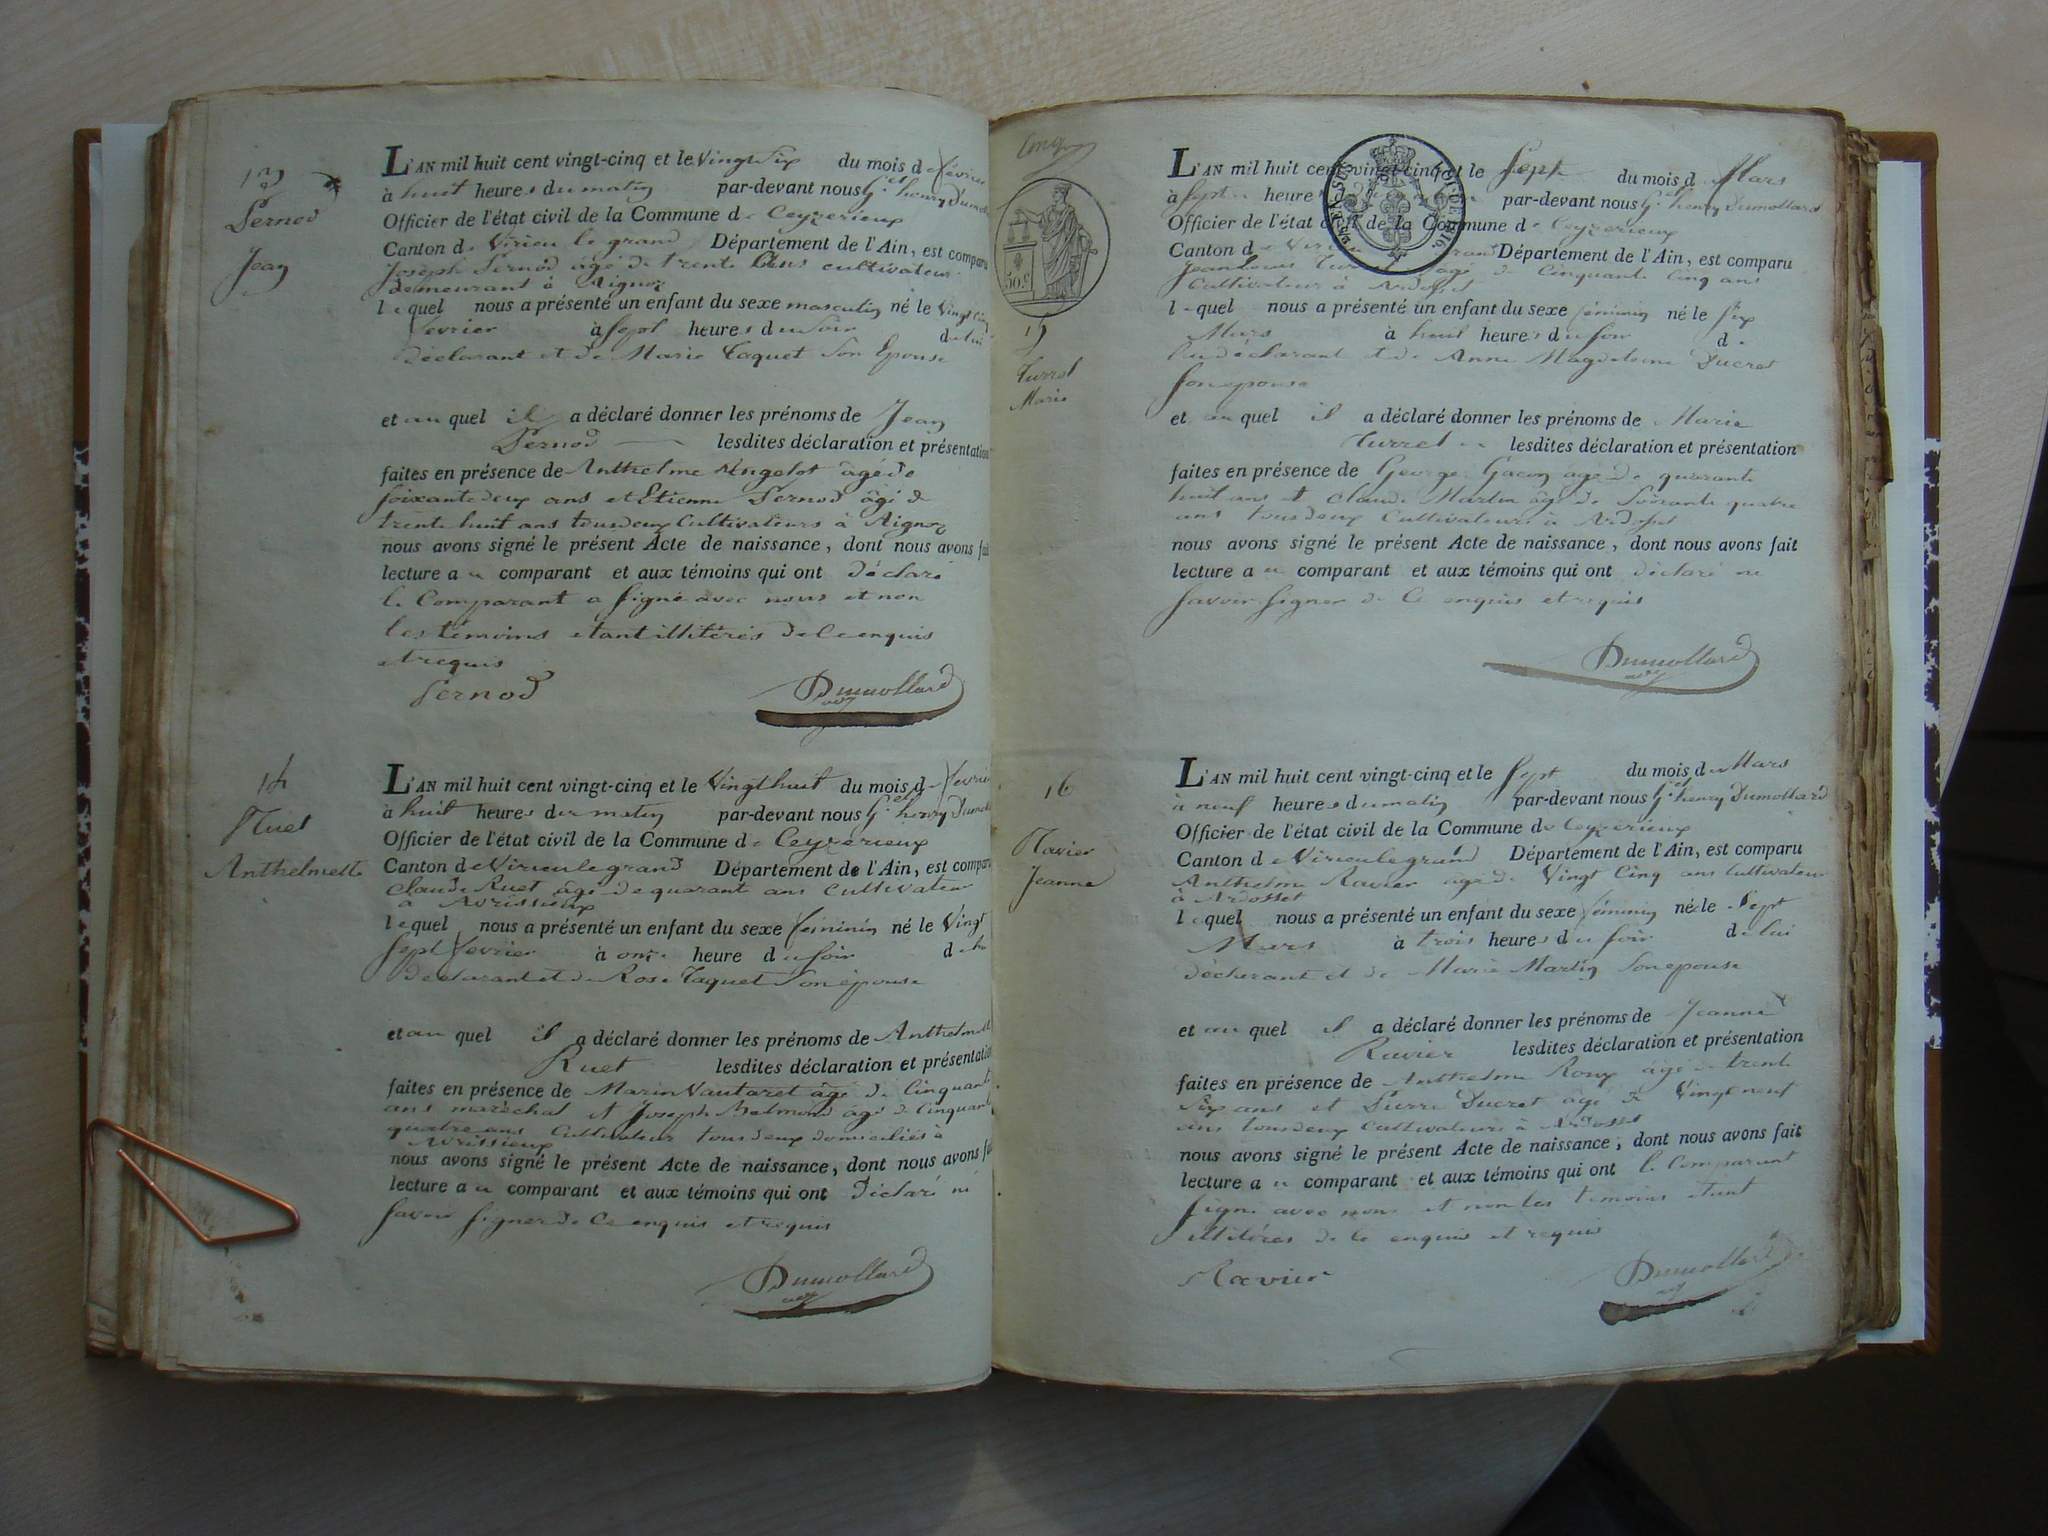 13
Pernod
Jean
L'AN mil huit cent vingt-cinq et le Vingt Six du mois de février
à huit heures du matin par-devant nous henry Dumol
Officier de l'état civil de la Commune de Ceyzerieux
Canton de Virieu le grand Département de l'Ain, est comparu
Joseph Pernod âgé de trente ans cultivateur
demeurant à Aignoz
lequel nous a présenté un enfant du sexe masculin né le Vingt Cinq
fevrier à Sept heures du Soir de lui
déclarant et de Marie Taquet Son Epouse
et au quel il a déclaré donner les prénoms de Jean
Pernod lesdites déclaration et présentation
faites en présence de Anthelme Angelot âgé de
soixante deux ans et Etienne Pernod âgé de
trente huit ans tous deux Cultivateurs à Aignoz
nous avons signé le présent Acte de naissance, dont nous avons fait
lecture au comparant et aux témoins qui ont déclaré
le Comparant a signé avec nous et non
les témoins etant illitérés de Ce enquis
et requis
Pernod Dumollard
14
Ruet
Anthelmette
L'AN mil huit cent vingt-cinq et le Vingt huit du mois de fevrier
à huit heures du matin par-devant nous henry Dumol
Officier de l'état civil de la Commune de Ceyzerieux
Canton de Virieu le grand Département de l'Ain, est comparu
Claude Ruet âgé de quarant ans cultivateur
à Avrissieux
lequel nous a présenté un enfant du sexe féminin né le Vingt
Sept fevrier à onze heure du Soir de lui
déclarant et de Rose Taquet Son épouse
et au quel il a déclaré donner les prénoms de Anthelmett
Ruet lesdites déclaration et présentation
faites en présence de Marin Vautaret âgé de Cinquante
ans maréchal et Joseph Belmond âgé de Cinquant
quatre ans Cultivateur tous deux domiciliés à
Avrissieux
nous avons signé le présent Acte de naissance, dont nous avons fait
lecture au comparant et aux témoins qui ont déclaré ne
savoir signer de Ce enquis et requis
Dumollard
Cinq
50 c
15
Turrel
Marie
L'AN mil huit cent vingt-cinq et le Sept du mois de Mars
à Sept heures par-devant nous henry Dumollard
Officier de l'état civil de la Commune de Ceyzerieux
Canton de Virieu grand Département de l'Ain, est comparu
Jean Louis Turrel âgé de Cinquante Cinq ans
Cultivateur à Ardosset
lequel nous a présenté un enfant du sexe féminin né le Six
Mars à huit heures du Soir de
lui déclarant et de Anne Magdeleine Ducret
Son epouse
et au quel il a déclaré donner les prénoms de Marie
Turrel lesdites déclaration et présentation
faites en présence de George Gacon âgé de quarante
huit ans et Claude Martin âgé de Soixante quatre
ans tous deux Cultivateurs à Ardosset
nous avons signé le présent Acte de naissance, dont nous avons fait
lecture au comparant et aux témoins qui ont déclaré ne
savoir signer de Ce enquis et requis
Dumollard
16
Ravier
Jeanne
L'AN mil huit cent vingt-cinq et le Sept du mois de Mars
à neuf heures du matin par-devant nous henry Dumollard
Officier de l'état civil de la Commune de Ceyzerieux
Canton de Virieu le grand Département de l'Ain, est comparu
Anthelme Ravier âgé de Vingt Cinq ans Cultivateur
à Ardosset
lequel nous a présenté un enfant du sexe féminin né le Sept
Mars à trois heures du Soir de lui
déclarant et de Marie Martin Son epouse
et au quel il a déclaré donner les prénoms de Jeanne
Ravier lesdites déclaration et présentation
faites en présence de Anthelme Roux âgé de trente
Six ans et Pierre Ducret âgé de Vingt neuf
ans tous deux Cultivateurs à Ardosset
nous avons signé le présent Acte de naissance, dont nous avons fait
lecture au comparant et aux témoins qui ont le Comparant
signé avec nous et non les témoins etant
illitérés de Ce enquis et requis
Ravier Dumollard